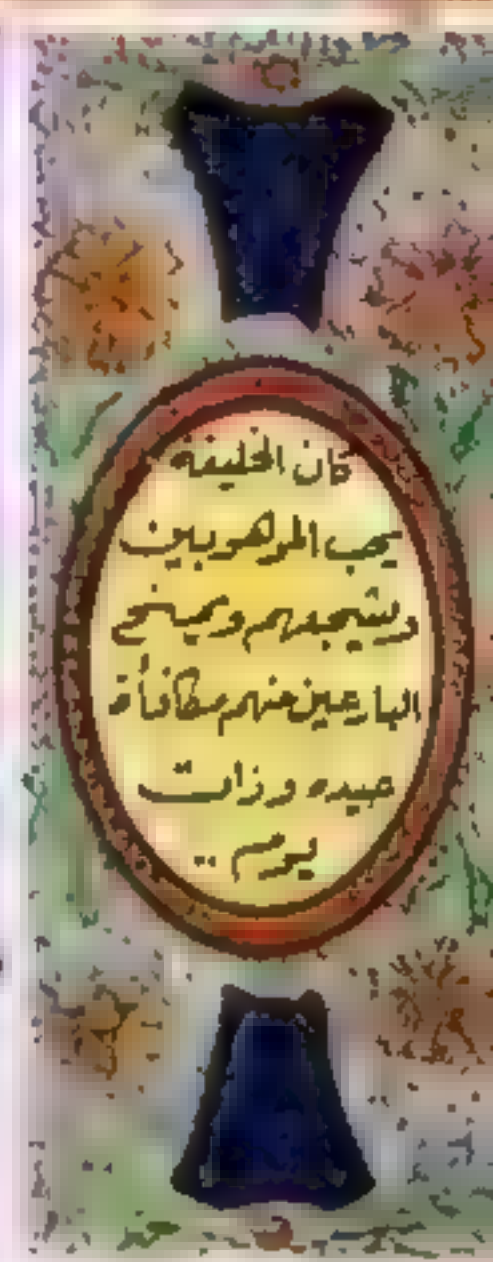 كان الخليفة
يحب الموهوبين
ويشجعهم ويمنح
البارعين منهم مكافأة
جيده وذات
يوم ..